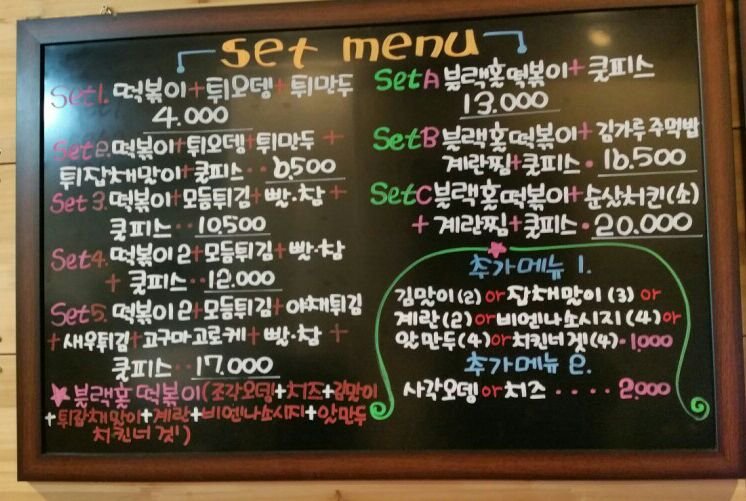 set menu
Set1. 떡볶이+튀오뎅+튀만두
4.000
Set2. 떡볶이+튀오뎅+튀만두+
튀잡채맛이+쿨피스··6,500
Set 3. 떡볶이+모듬튀김+빵·참+
쿨피스··10,500
Set4. 떡볶이2+모듬튀김+빵·참
+쿨피스··12.000
Set5. 떡볶이2+모듬튀김+야채튀김
+새우튀김+고구마고로케+빵·참+
쿨피스··17.000
★블랙홀 떡볶이(조각오뎅+치즈+김맛이
+튀잡채맛이+계란+비엔나소시지+앗만두
치킨너겟)
SetA 블랙홀떡볶이+쿨피스
13.000
SetB 블랙홀떡볶이+김가루주먹밥
계란찜+쿨피스·16.500
SetC 블랙홀떡볶이+순살치킨(소)
+계란찜+쿨피스·20.000
추가메뉴 1.
김맛이(2) or 잡채맛이(3) or
계란(2) or 비엔나소시지(4) or
앗만두(4) or 치킨너겟(4)-1,000
추가메뉴 2.
사각오뎅 or 치즈····2,000